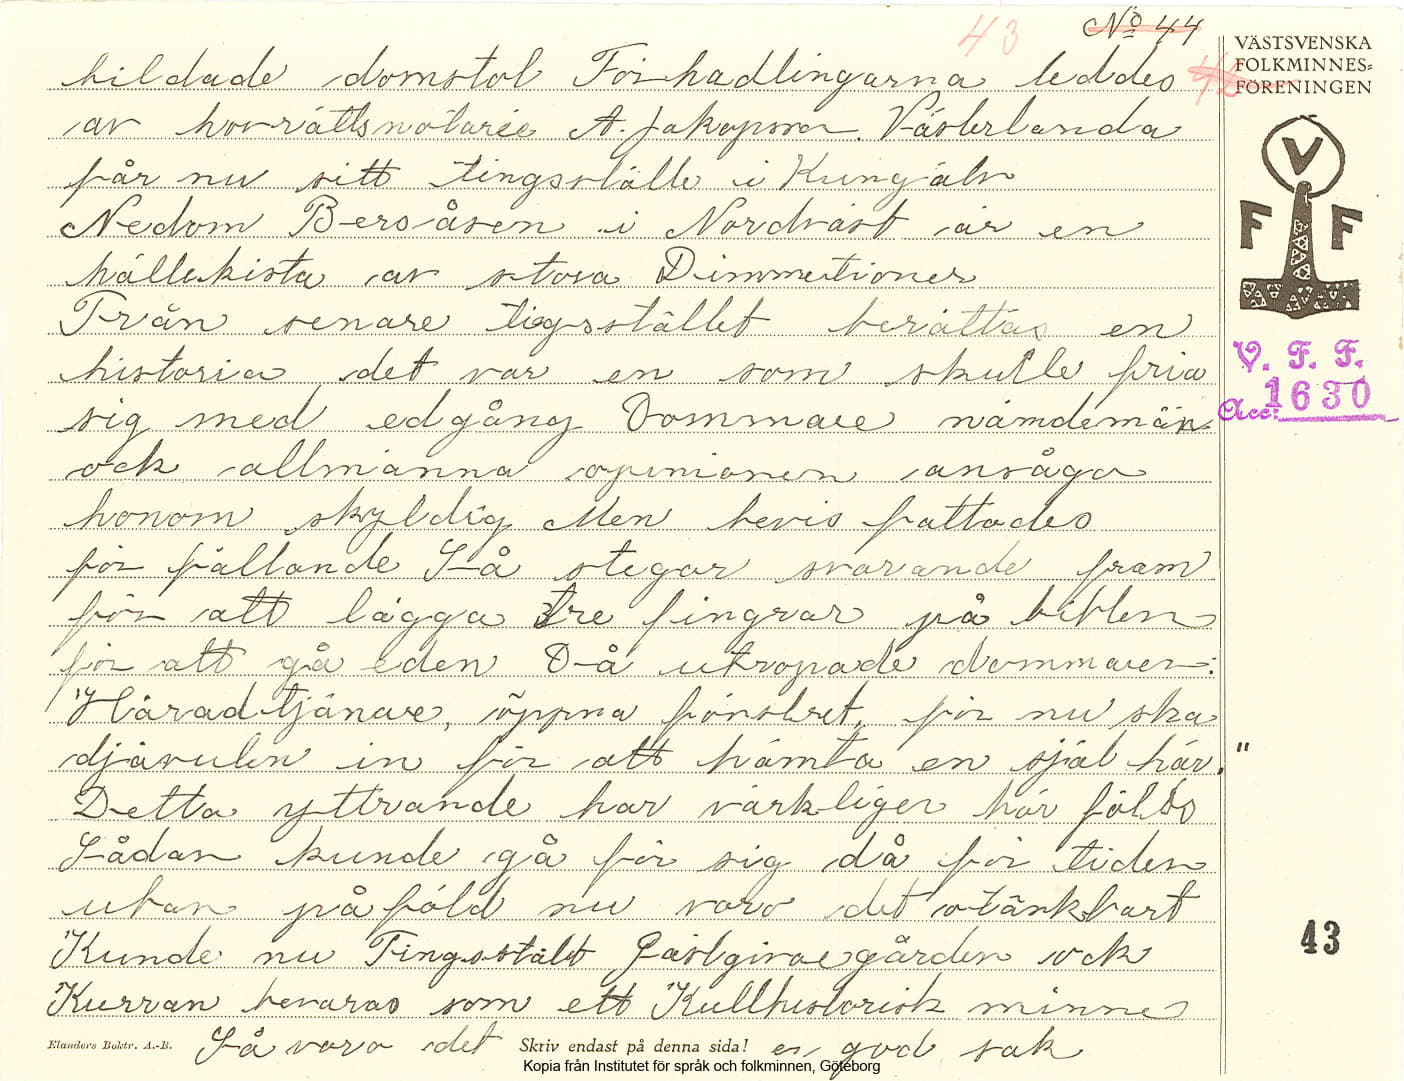 43
No 44
42
VÄSTSVENSKA
FOLKMINNES=
FÖRENINGEN
V
F F
V. F. F.
Acc: 1630
bildade domstol Förhadlingarna leddes
av hovrättsnotarie A. Jakopson. Västerlanda
får nu sitt tingsställe i Kungälv
Nedom Bersåsen i Nordväst är en
hällekista av stora Dimmentioner
Från senare tigsstället berättas en
historia det var en som skulle fria
sig med edgång Dommare nämdemän
ock allmänna opinionen ansåga
honom skyldig Men bevis fattades
för fällande Så stegar svarande fram
för att lägga tre fingrar på bibblen
för att gå eden Då utropade dommaren:
"Häradtjänare, öppna fönstret, för nu ska
djävulen in för att hämta en själ här."
Detta yttrande har värkligen här fälts
Sådan kunde gå för sig då för tiden
utan påföld nu voro det otänkbart
Kunde nu Tingsstält Gästgivaregården ock
Kurran bevaras som ett Kullhistorisk minne
Så voro det en god sak
43
Elanders Boktr. A.-B.
Skriv endast på denna sida!
Kopia från Institutet för språk och folkminnen, Göteborg